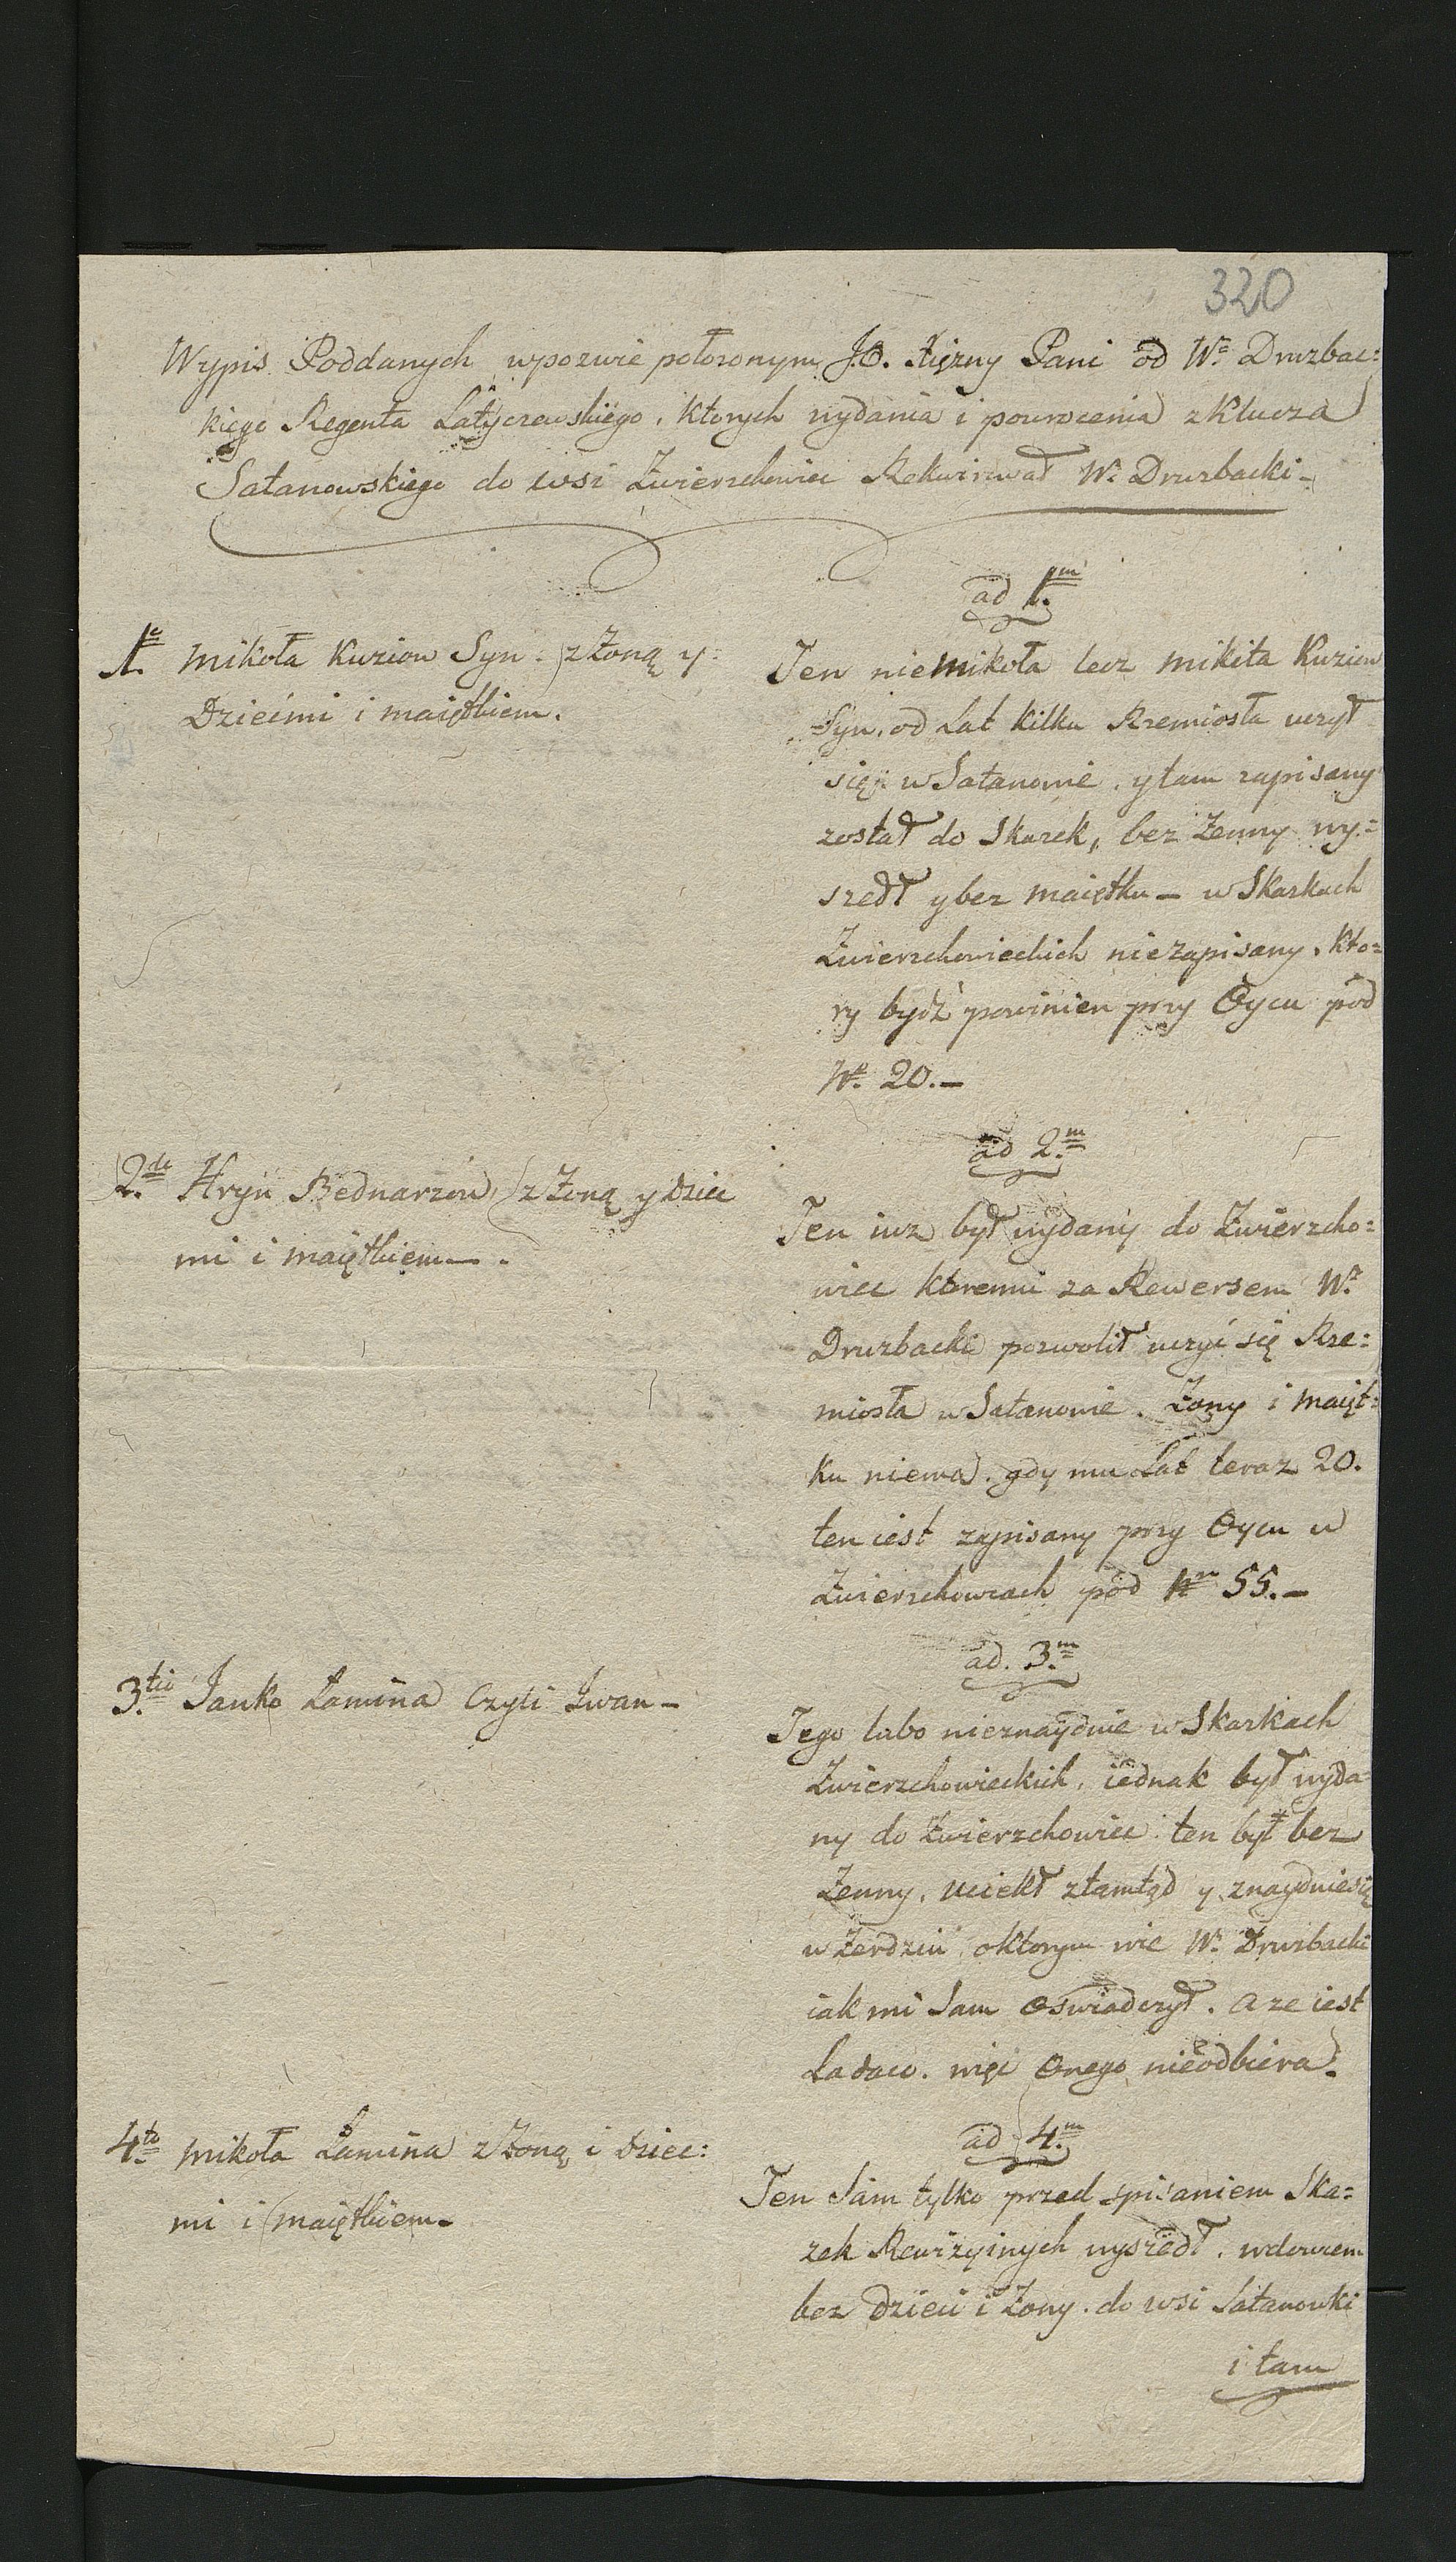 320
Wypis Poddanych wpozwie położonym J.O. Xiężny Pani od Wº Druzbac=
kiego Regenta Latyczewskiego, ktorych wydania i powrocenia z Klucza
Satanowskiego do wsi Zwierzchowiec Rekwirował W. Druzbacki -
1º Mikoła Kuziow Syn. z Zoną y
Dziećmi i maiętkiem.
ad 1.m
Ten nie Mikoła lecz Mikita Kuziow
Syn, od Lat kilku Rzemiosła uczył
się w Satanowie, y tam zapisany
został do Skazek, bez Zonny wy=
szedł y bez maiętku - w Skazkach
Zwierzchowieckich niezapisany, kto=
ry bydź powinien przy Oycu pod
Nº 20.-
2.do Hryń Bednarzów, z Zoną y Dziec
mi i maiętkiem - .
ad 2.m
Ten iuz był wydany do Zwierzcho=
wiec ktoremu za Rewersem W.
Druzbacki pozwolił uczyć się Rze=
miosła w Satanowie. Zony i maięt=
ku niema. gdy mu Lat teraz 20.
ten iest zapisany przy Oycu w
Zwierzchowcach pod Nrm 55.-
3.tio Janko Łamina Czyli Iwan -
ad. 3.m
Tego lubo nieznaydnie w Skazkach
Zwierzchowieckich, iednak był wyda
ny do Zwierzchowiec. ten był bez
Zenny, uciekł ztamtąd y znaydnie się
w Zerdziu, o ktorym wie W. Druzbacki
iak mi Sam oświadczył. a ze iest
Ladaco. więc Onego nieodbiera.
4.to Mikoła Łamina z Zoną i Dziec:
mi i maiętkiem -
ad 4.m
Ten Sam tylko przed spisaniem Ska=
zek Rewizyinych wyszedł. wdowcem
bez dzieci i Zony. do wsi Satanowki
i tam